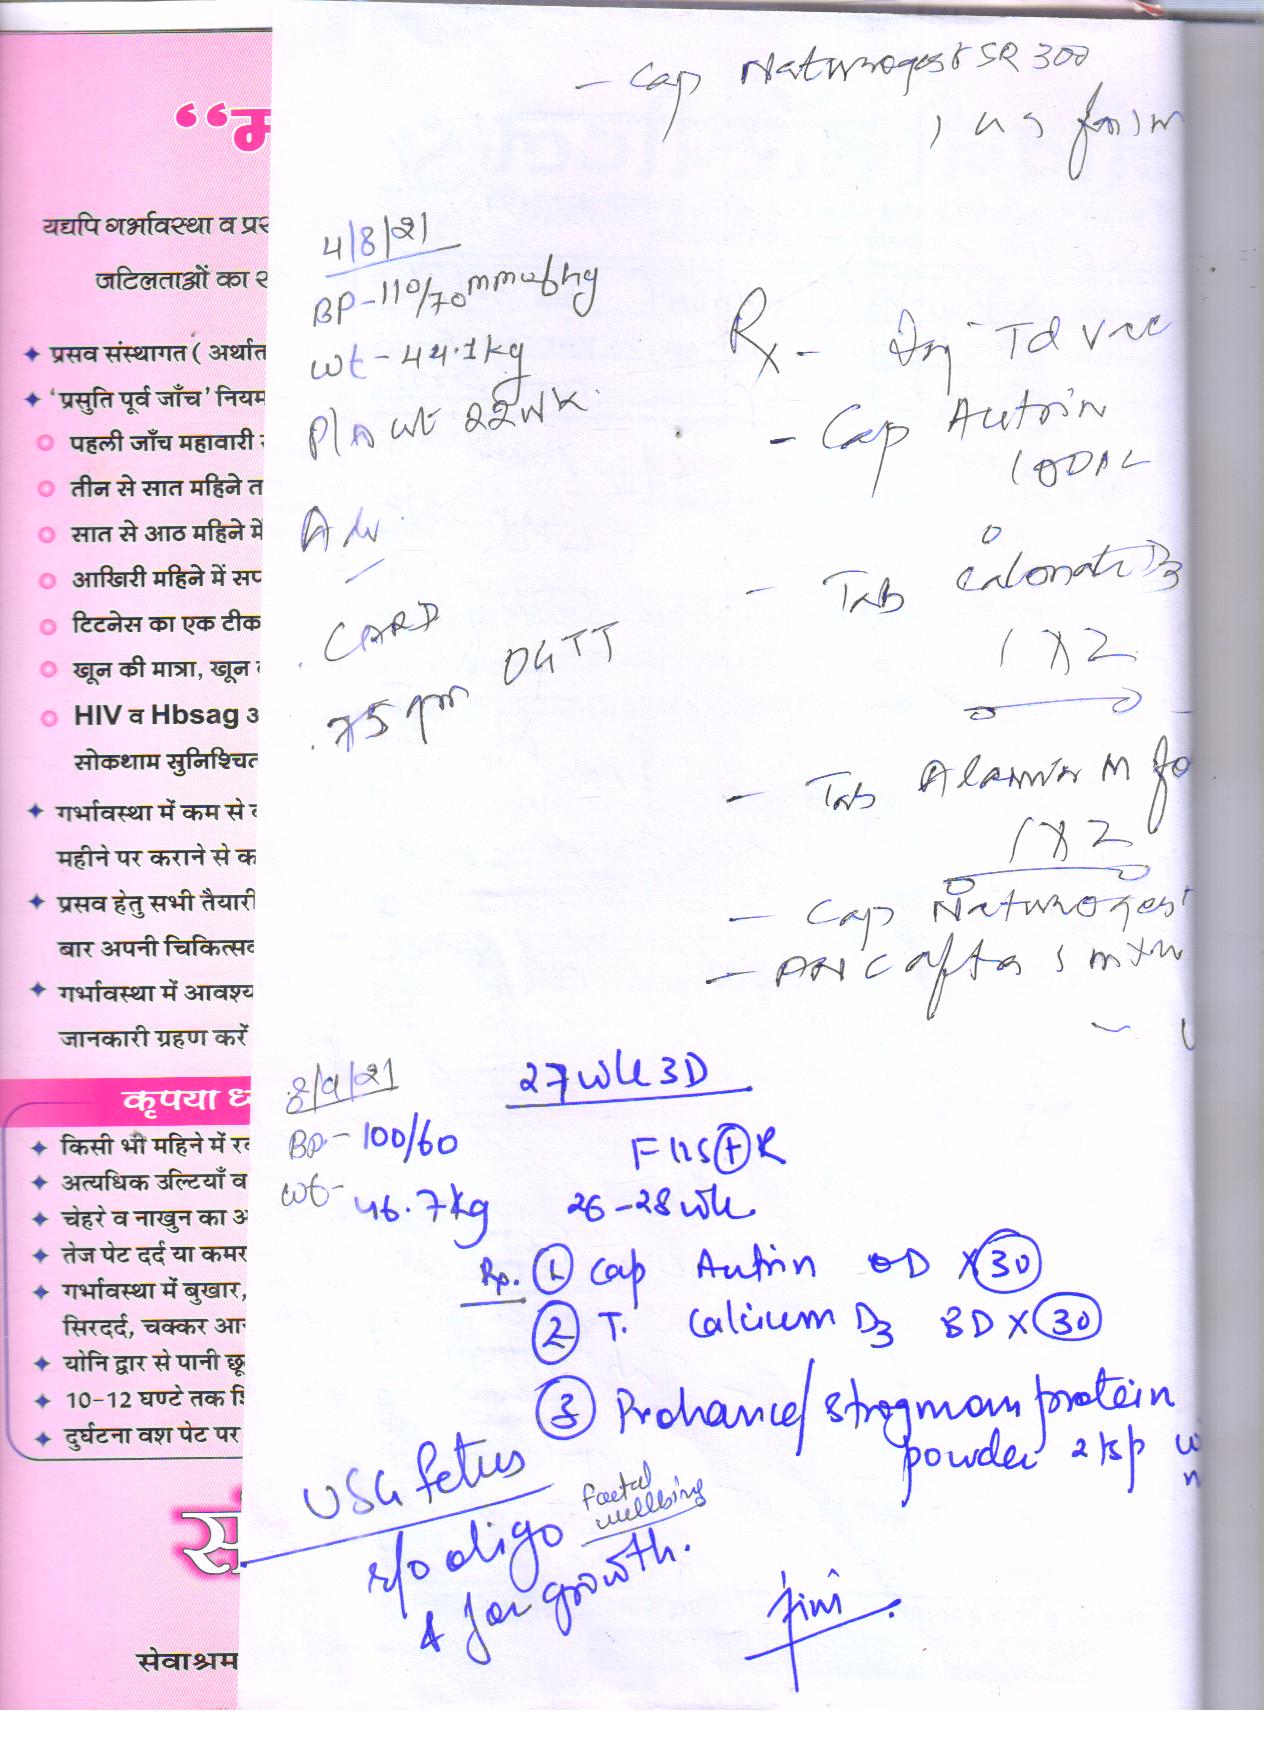 - Cap Naturogest SR 300
“म
यद्यपि गर्भावस्था व प्रस
जटिलताओं का
प्रसव संस्थागत ( अर्थात
‘प्रसुति पूर्व जाँच’ नियम
पहली जाँच महावारी
तीन से सात महिने त
सात से आठ महिने में
आखिरी महिने में सप
टिटनेस का एक टीक
खून की मात्रा, खून
HIV व Hbsag अ
सोकथाम सुनिश्चित
गर्भावस्था में कम से
महीने पर कराने से क
प्रसव हेतु सभी तैयारी
बार अपनी चिकित्सव
गर्भावस्था में आवश्य
जानकारी ग्रहण करें
कृपया ध्
किसी भी महिने में र
अत्यधिक उल्टियाँ व
चेहरे व नाखुन का अ
तेज पेट दर्द या कमर
गर्भावस्था में बुखार,
सिरदर्द, चक्कर आ
योनि द्वार से पानी छू
10-12 घण्टे तक शि
दुर्घटना वश पेट पर
सं
सेवाश्रम
4/8/21
BP-110/70 mmofhg
wt-44.1kg
22wk
Adv
CARD
75 gm OGTT
Rx - Inj Td vac
- Cap Autrin
1 OD
- Tab D3
1 X 2
- Tab M fo
1 X 2
- Cap Naturogest
- ANC after 1
8/9/21 27wk3D
BP- 100/60 FHS⊕R
wt- 46.7kg 26-28wk
Rp. ① Cap Autrin OD X 30
② T. Calcium D3 BD X 30
③ Prohance/strogmom protein
powder 2 tsp w
USG fetus
foetal
wellbing
r/o oligo
& for growth.